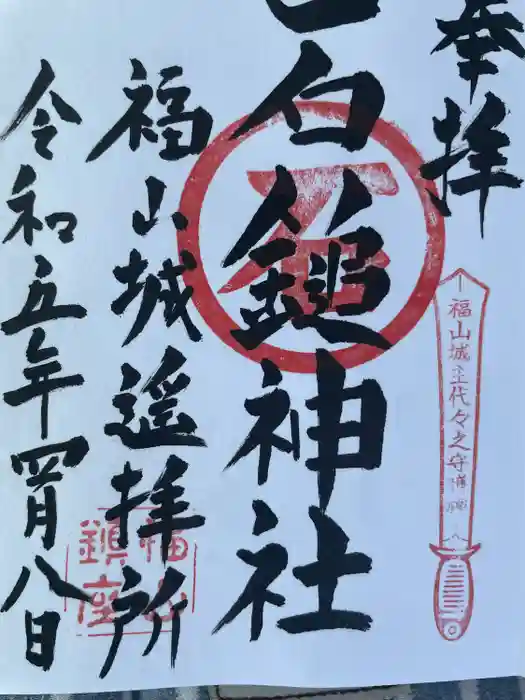 奉拝
白鎚神社
福山城遥拝所
令和五年四月八日
福山城主代々之守護神
福山
鎮座